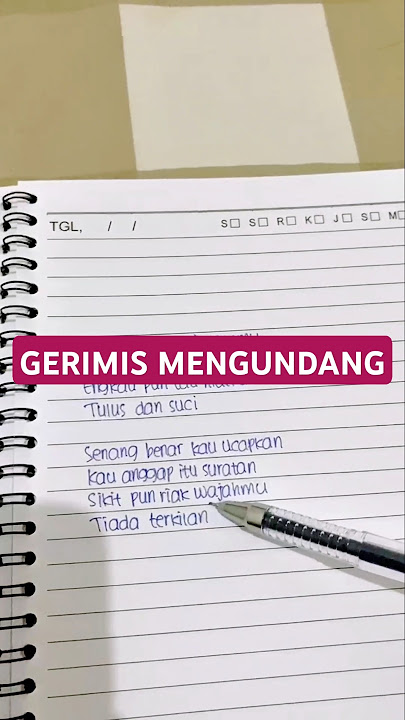 TGL, / /
S□ S□ R□ K□ J□ S□ M
GERIMIS MENGUNDANG
Engkau pun
Tulus dan suci
Senang benar kau ucapkan
Kau anggap itu suratan
Sikit pun riak wajahmu
Tiada terkilan